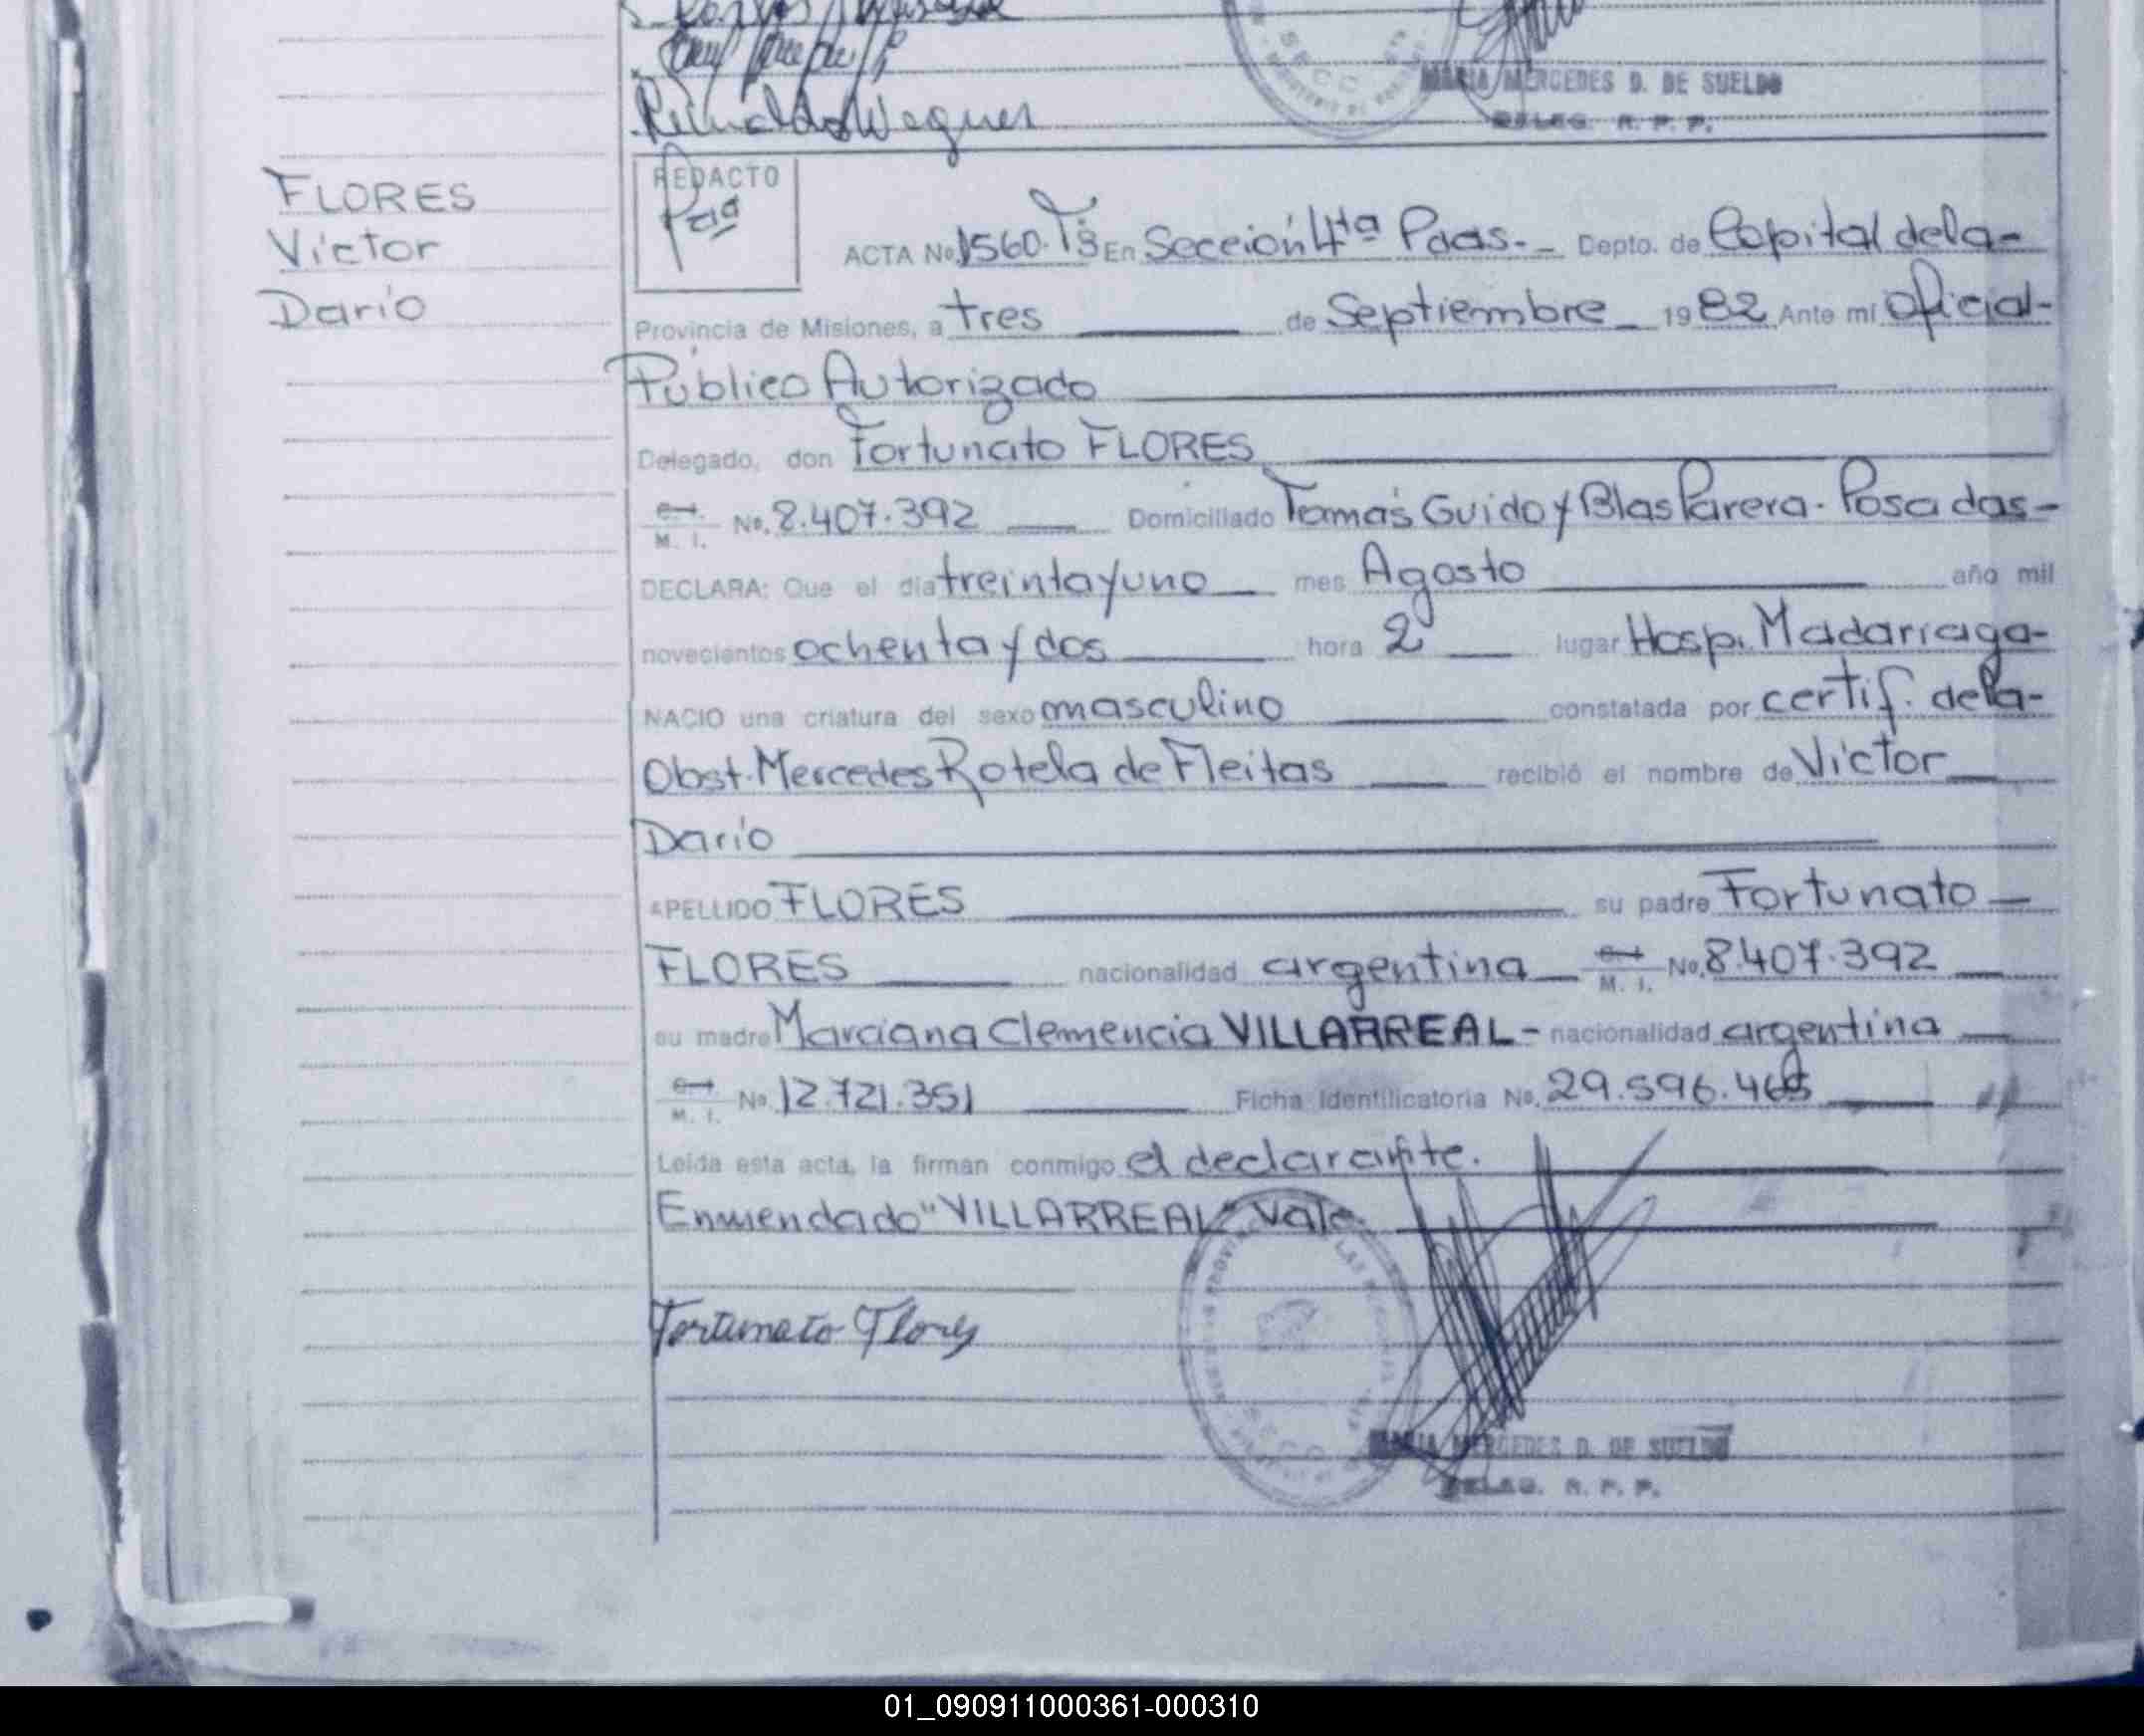 Reinaldo Wegner
MARIA MERCEDES D. DE SUELDO
DELEG. R. P. P.
FLORES
Víctor
Darío
REDACTO
ACTA No. 1560. Tº 8 En Sección 4ta Pdas.- Depto. de Capital de la-
Provincia de Misiones, a tres de Septiembre 1982 Ante mí Oficial-
Público Autorizado
Delegado, don Fortunato FLORES
C.I. M. I. No. 8.407.392 Domiciliado Tomás Guido y Blas Parera. Posadas-
DECLARA: Que el día treinta y uno mes Agosto año mil
novecientos ochenta y dos hora 2 lugar Hosp. Madariaga-
NACIO una criatura del sexo masculino constatada por certif. de la-
Obst. Mercedes Rotela de Fleitas recibió el nombre de Víctor
Darío
APELLIDO FLORES su padre Fortunato
FLORES nacionalidad argentina C.I. M. I. No. 8.407.392
su madre Marciana Clemencia VILLARREAL- nacionalidad argentina
C.I. M. I. No. 12.721.351 Ficha Identificatoria No. 29.596.465
Leída esta acta, la firman conmigo el declarante.
Enmendado "VILLARREAL" Vale.
Fortunato Flores
MARIA MERCEDES D. DE SUELDO
DELEG. R. P. P.
01_090911000361-000310